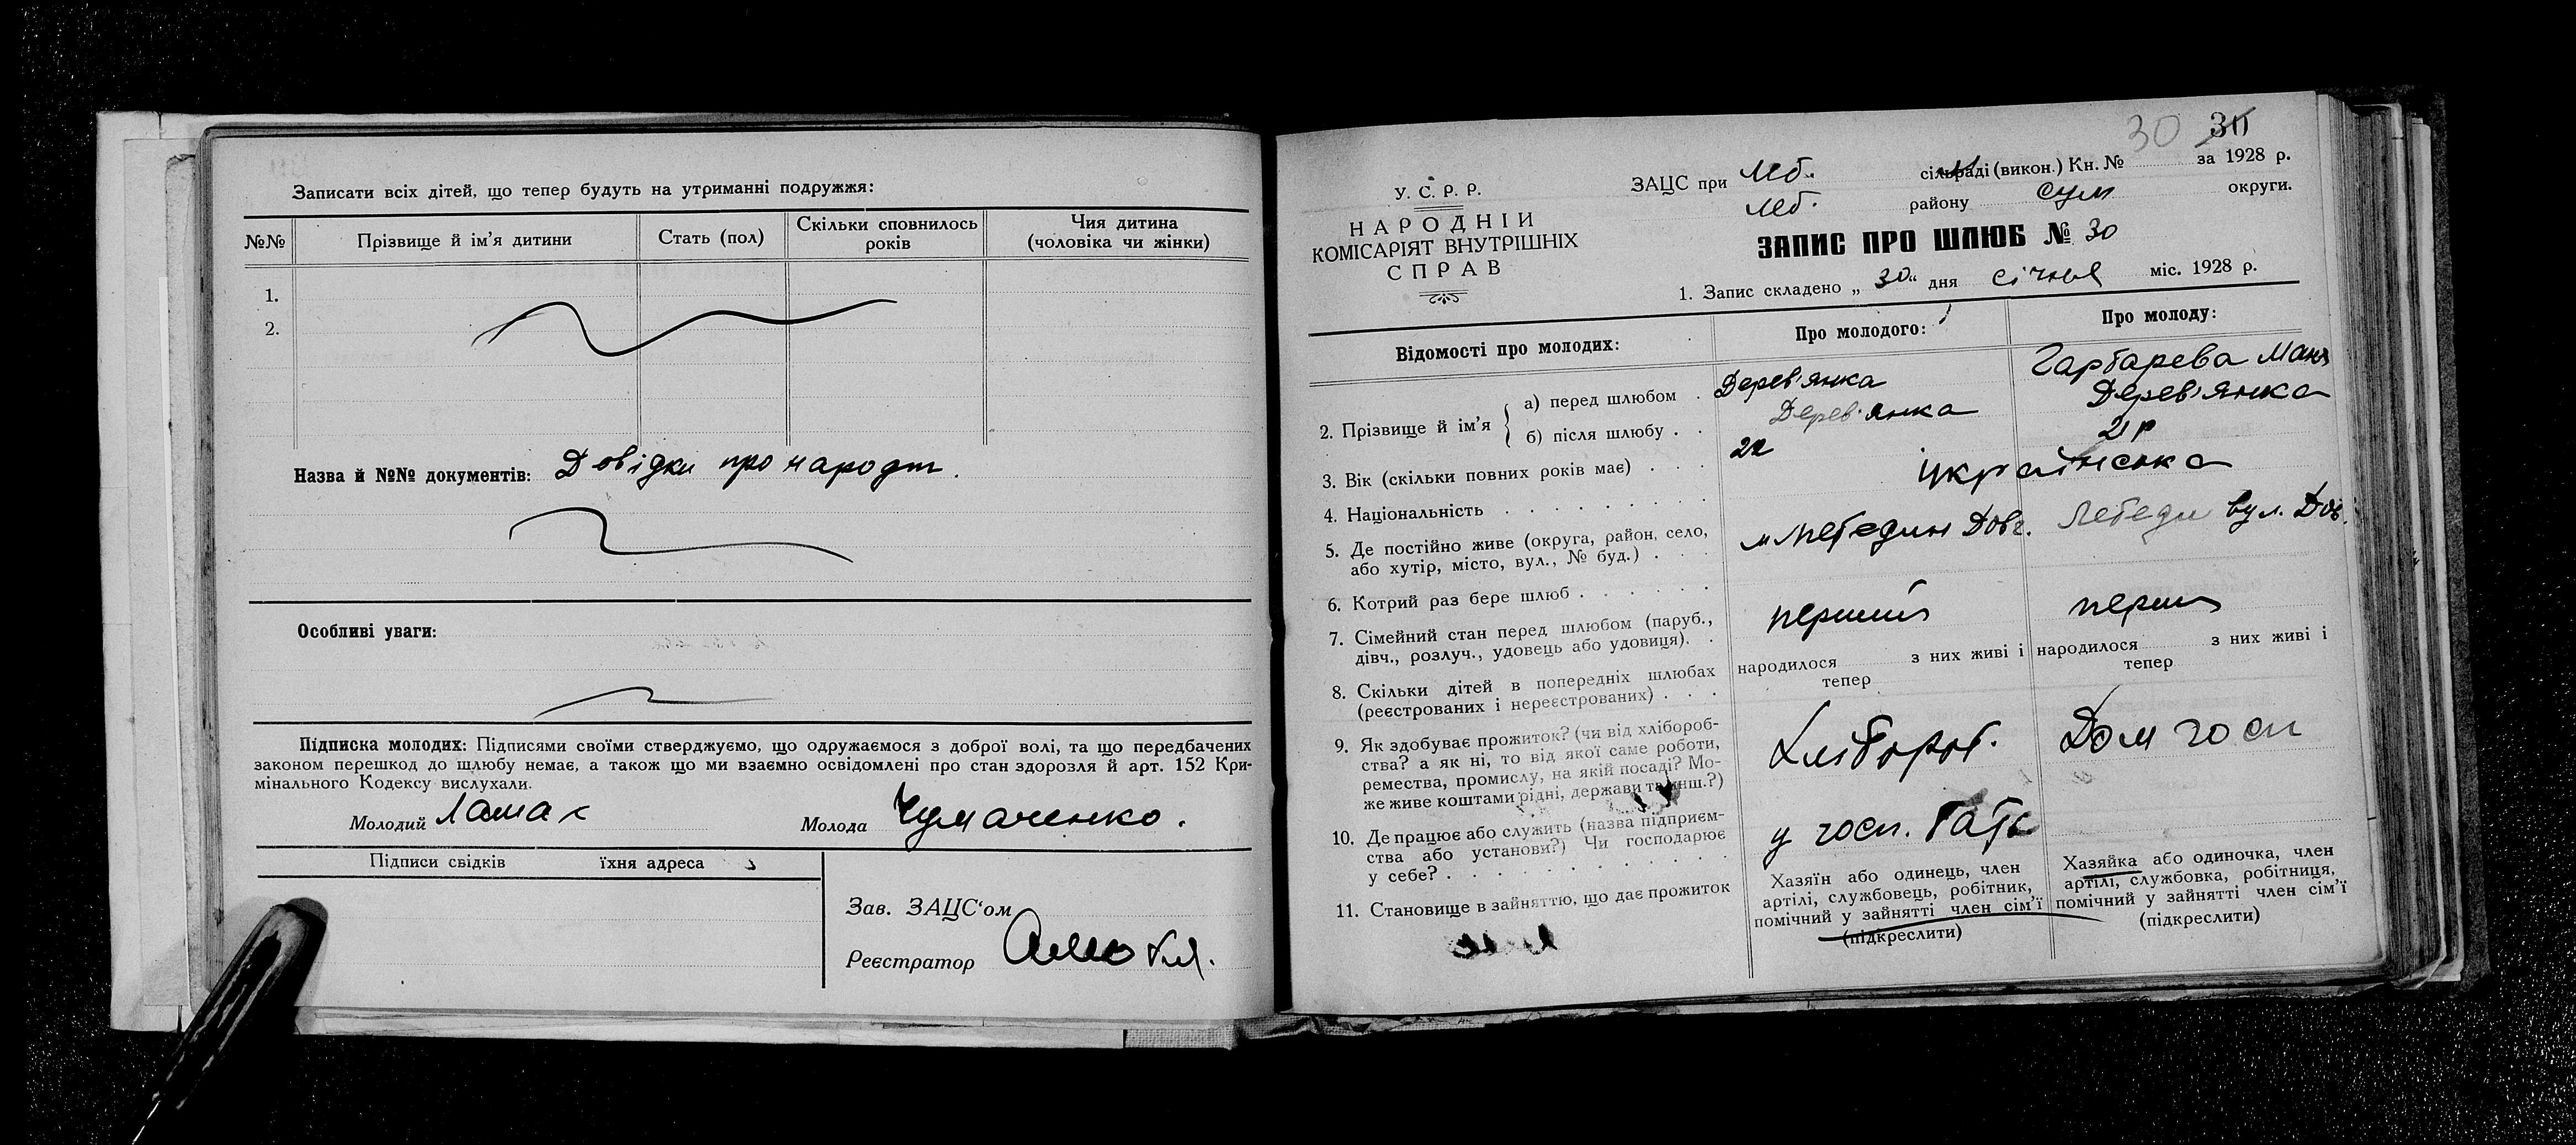 Записати всіх дітей, що тепер будуть на утриманні подружжя:
№№ Прізвище й ім'я дитини Стать (пол) Скільки сповнилось років Чия дитина (чоловіка чи жінки)
1.
2.
Назва й №№ документів: Довідки про народж.
Особливі уваги:
Підписка молодих: Підписями своїми стверджуємо, що одружаємося з доброї волі, та що передбачених
законом перешкод до шлюбу немає, а також що ми взаємно освідомлені про стан здоровля й арт. 152 Кри-
мінального Кодексу вислухали.
Молодий Ламах Молода Чумаченко.
Підписи свідків їхня адреса
Зав. ЗАЦС'ом
Реєстратор
30 30
У. С. Р. Р.
НАРОДНІЙ
КОМІСАРІЯТ ВНУТРІШНІХ
СПРАВ
ЗАЦС при Леб. сільраді (викон.) Кн. № за 1928 р.
Леб. району Сум округи.
ЗАПИС ПРО ШЛЮБ № 30
1. Запис складено „30" дня січня міс. 1928 р.
Відомості про молодих: Про молодого: Про молоду:
2. Прізвище й ім'я
а) перед шлюбом Дерев'янка Гарбарева Мань
б) після шлюбу Дерев'янка Дерев'янка
3. Вік (скільки повних років має) 22 21 р
4. Національність українська
5. Де постійно живе (округа, район, село,
або хутір, місто, вул., № буд.) м Лебедин Довг. Лебедин вул. Дов.
6. Котрий раз бере шлюб
7. Сімейний стан перед шлюбом (паруб.,
дівч., розлуч., удовець або удовиця). перший перш
8. Скільки дітей в попередніх шлюбах
(реєстрованих і нереєстрованих)
народилося з них живі і тепер
народилося з них живі і тепер
9. Як здобуває прожиток? (чи від хлібороб-
ства? а як ні, то від якої саме роботи,
ремества, промислу, на якій посаді? Мо-
же живе коштами рідні, держави та инш.?)
Хлібороб. Дом госп
10. Де працює або служить (назва підприєм-
ства або установи?) Чи господарює
у себе?
у госп. батьк
11. Становище в зайняттю, що дає прожиток
Хазяїн або одинець, член
артілі, службовець, робітник,
помічний у зайнятті член сім'ї
(підкреслити)
Хазяйка або одиночка, член
артілі, службовка, робітниця,
помічний у зайнятті член сім'ї
(підкреслити)